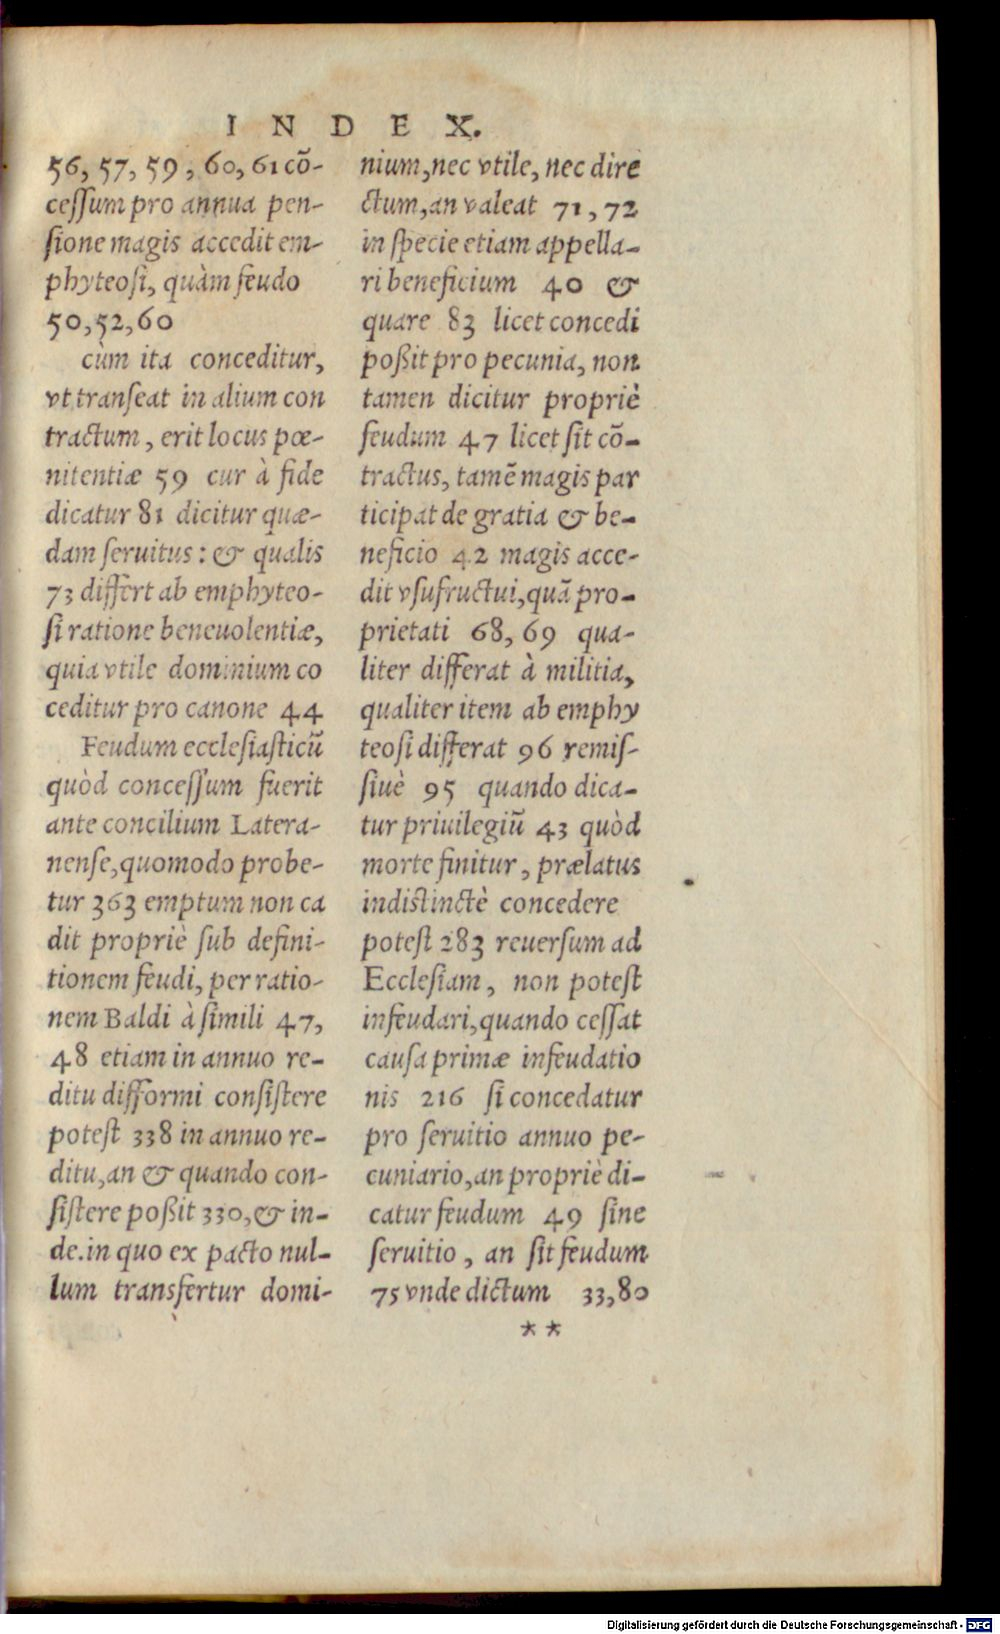 INDEX.
56, 57, 59, 60, 61 cõ-
ceſſum pro annua pen-
ſione magis accedit em-
phyteoſi, quàm feudo
50, 52, 60
cùm ita conceditur,
vt tranſeat in alium con
tractum, erit locus pœ-
nitentiæ 59 cur à fide
dicatur 81 dicitur quæ-
dam ſeruitus: & qualis
73 differt ab emphyteo-
ſi ratione beneuolentiæ,
quia vtile dominium co
ceditur pro canone 44
Feudum eccleſiaſticũ
quòd conceſſum fuerit
ante concilium Latera-
nenſe, quomodo probe-
tur 363 emptum non ca
dit propriè ſub defini-
tionem feudi, per ratio-
nem Baldi à ſimili 47,
48 etiam in annuo re-
ditu difformi conſiſtere
poteſt 338 in annuo re-
ditu, an & quando con-
ſiſtere poßit 330, & in-
de. in quo ex pacto nul-
lum transfertur domi-
nium, nec vtile, nec dire
ctum, an valeat 71, 72
in ſpecie etiam appella-
ri beneficium 40 &
quare 83 licet concedi
poßit pro pecunia, non
tamen dicitur propriè
feudum 47 licet ſit cõ-
tractus, tamẽ magis par
ticipat de gratia & be-
neficio 42 magis acce-
dit vſufructui, quã pro-
prietati 68, 69 qua-
liter differat à militia,
qualiter item ab emphy
teoſi differat 96 remiſ-
ſiuè 95 quando dica-
tur priuilegiũ 43 quòd
morte finitur, prælatus
indiſtinctè concedere
poteſt 283 reuerſum ad
Eccleſiam, non poteſt
infeudari, quando ceſſat
cauſa primæ infeudatio
nis 216 ſi concedatur
pro ſeruitio annuo pe-
cuniario, an propriè di-
catur feudum 49 ſine
ſeruitio, an ſit feudum
75 vnde dictum 33, 80
**
Digitalisierung gefördert durch die Deutsche Forschungsgemeinschaft - DFG